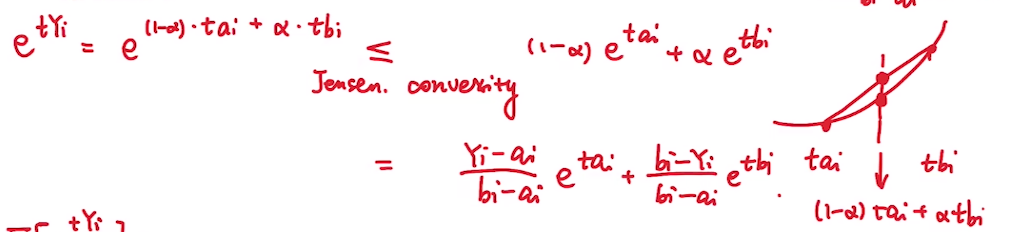 e^{tYi} = e^{(1-α)·tai + α·tbi} ≤ (1-α) e^{tai} + α e^{tbi}
Jensen. convexity
= \frac{Yi-ai}{bi-ai} e^{tai} + \frac{bi-Yi}{bi-ai} e^{tbi}.
tai tbi
(1-α) tai + αtbi